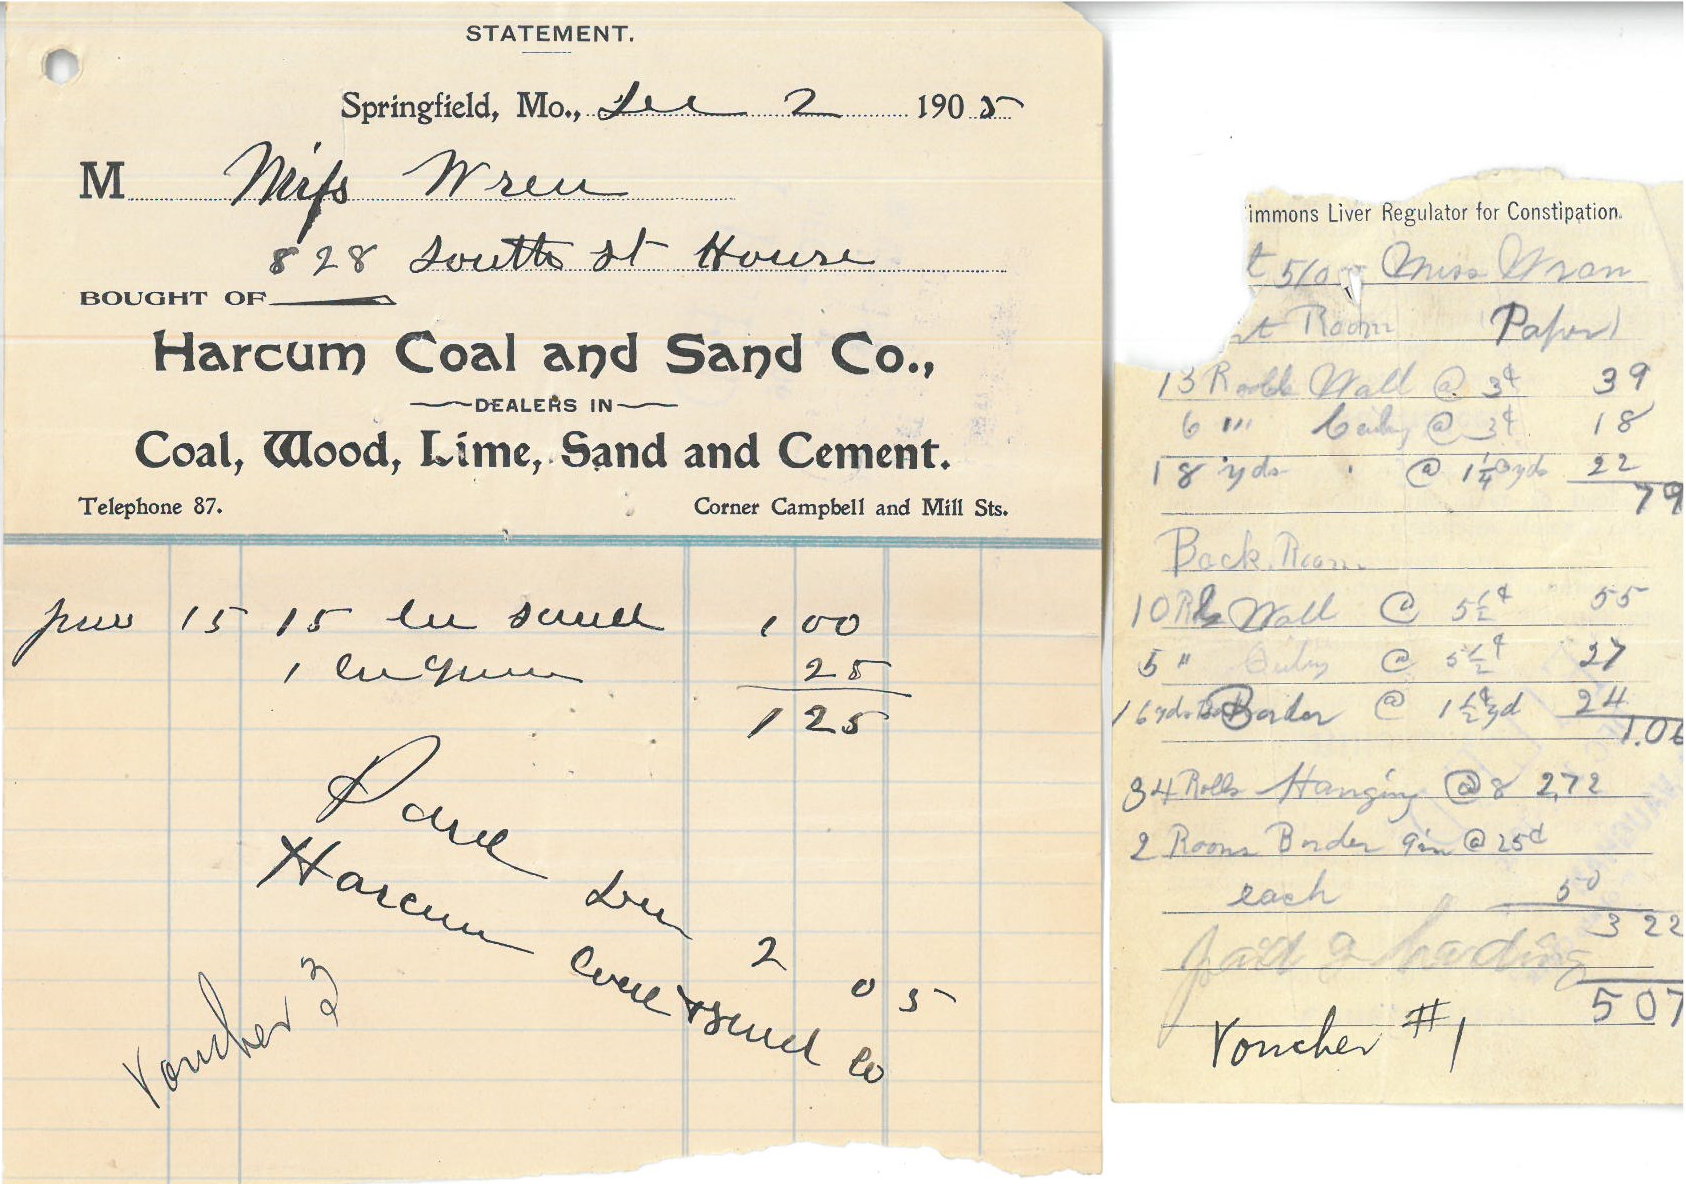 STATEMENT.
Springfield, Mo., Dec 2 1905
M Miss Wren
828 South St House
BOUGHT OF
Harcum Coal and Sand Co.,
DEALERS IN
Coal, Wood, Lime, Sand and Cement.
Telephone 87. Corner Campbell and Mill Sts.
15 15 sand 1 00
1 25
1 25
Paid Dec 2 05
Harcum Coal & Sand Co
Voucher 3
immons Liver Regulator for Constipation.
t 510 Miss Wran
t Room Paper
13 Wall @ 3¢ 39
6 """ Ceiling @ 3¢ 18
18 yds @ 1¼ yds 22
79
Back Room
10 Rls Wall @ 5½¢ 55
5 " Ceiling @ 5½¢ 27
16 yds Border @ 1½¢ yd 24
1.06
34 Rolls Hanging @ 8 2,72
2 Rooms Border 9in @ 25¢
each 50
3 22
paid
507
Voucher #1